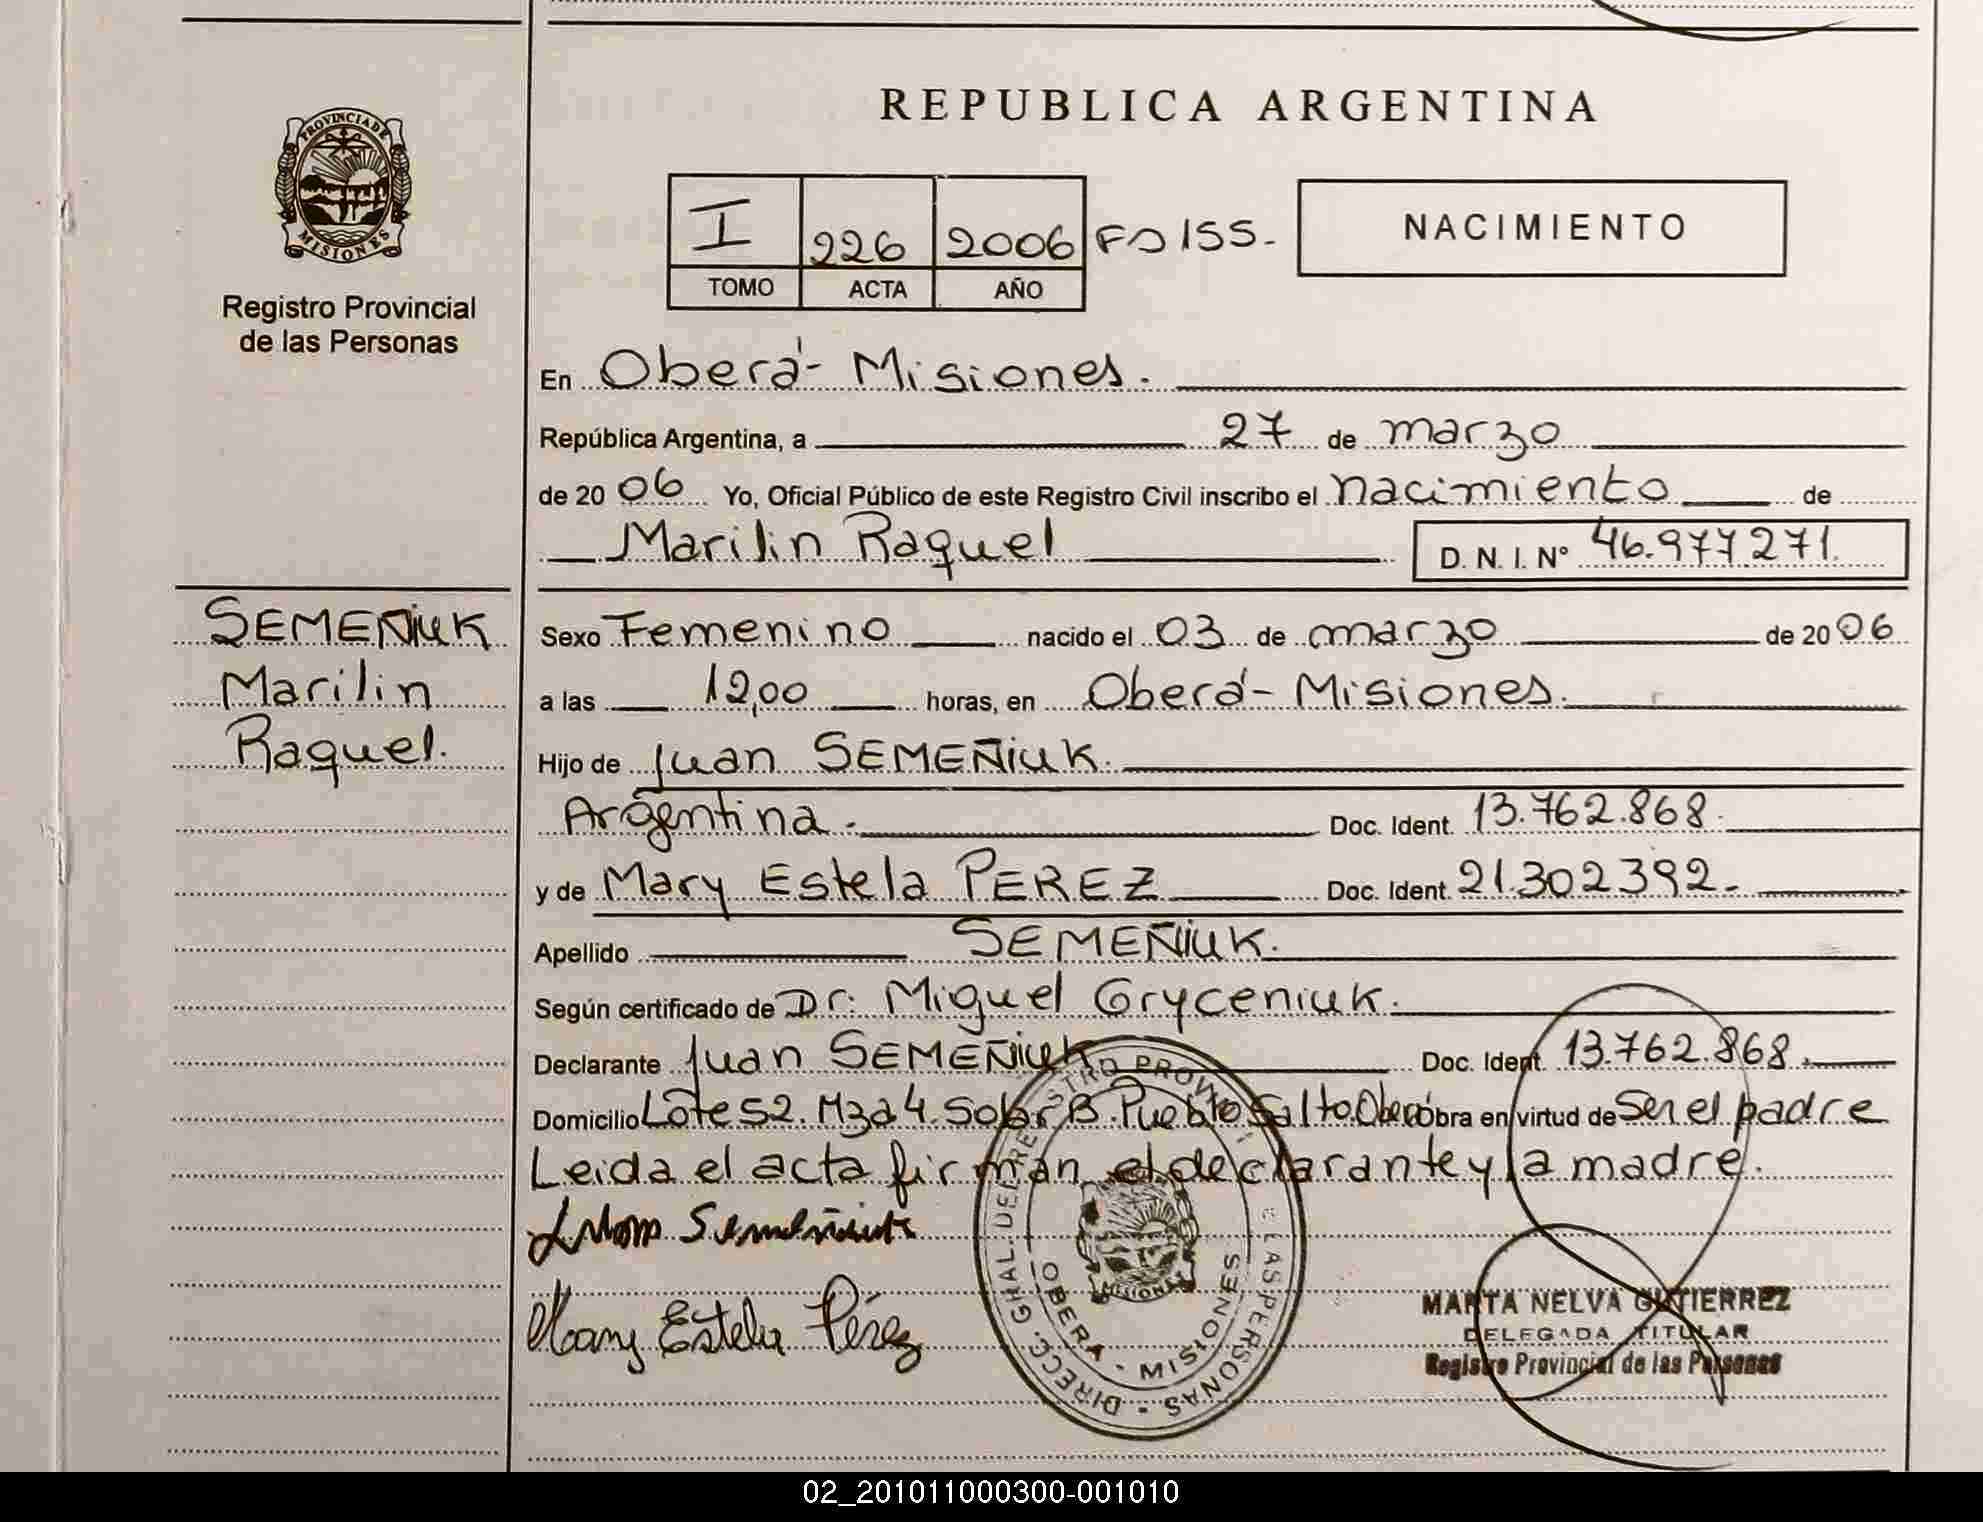 REPUBLICA ARGENTINA
PROVINCIA DE
MISIONES
Registro Provincial
de las Personas
I 226 2006 Fº 155.
TOMO ACTA AÑO
NACIMIENTO
En Oberá - Misiones.
República Argentina, a 27 de marzo
de 2006 Yo, Oficial Público de este Registro Civil inscribo el nacimiento de
Marilin Raquel D. N. I. Nº 46.977.271.
SEMEÑiuK
Marilin
Raquel.
Sexo Femenino nacido el 03 de marzo de 2006
a las 12,00 horas, en Oberá - Misiones.
Hijo de Juan SEMEÑiuK.
Argentina. Doc. Ident. 13.762.868.
y de Mary Estela PEREZ Doc. Ident. 21.302392.
Apellido SEMEÑiuK.
Según certificado de Dr. Miguel Gryceniuk.
Declarante Juan SEMEÑiuK Doc. Ident. 13.762.868.
Domicilio Lote 52. Mza 4. Solar B. Pueblo Salto. Oberá obra en virtud de Ser el padre
Leida el acta firman el declarante y la madre.
Juan Semeñiuk
Mary Estela Pérez
DIRECC. GRAL. DEL REGISTRO PROVINCIAL DE LAS PERSONAS
OBERA - MISIONES
MISIONES
MARTA NELVA GUTIERREZ
DELEGADA TITULAR
Registro Provincial de las Personas
02_201011000300-001010